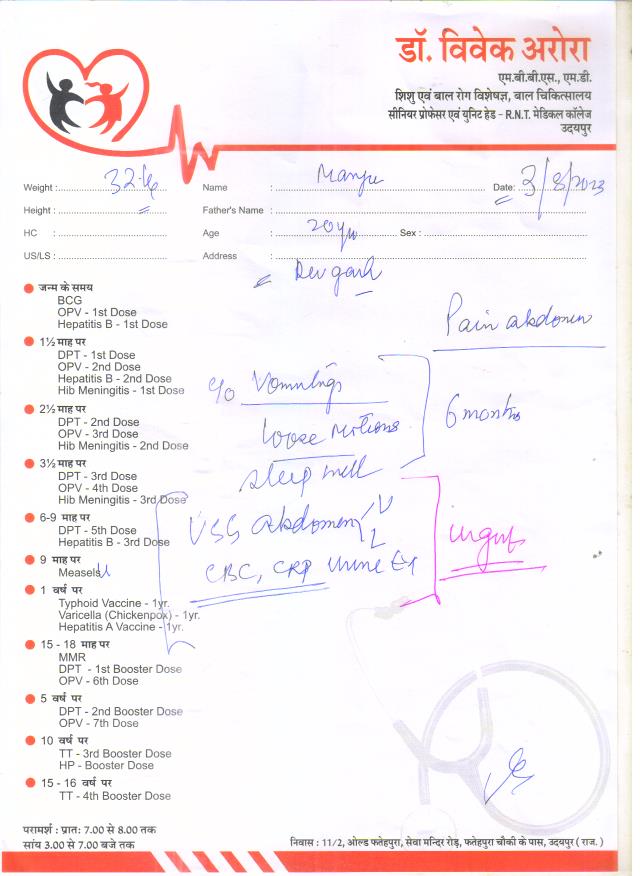 डॉ. विवेक अरोरा
एम.बी.बी.एस., एम.डी.
शिशु एवं बाल रोग विशेषज्ञ, बाल चिकित्सालय
सीनियर प्रोफेसर एवं यूनिट हेड - R.N.T. मेडिकल कॉलेज
उदयपुर
Weight : 32 kg Name : Manju Date: 3/8/2023
Height : Father's Name :
HC : Age : 20 yrs Sex :
US/LS : Address : Devgarh
जन्म के समय
BCG
OPV - 1st Dose
Hepatitis B - 1st Dose
Pain abdomen
1½ माह पर
DPT - 1st Dose
OPV - 2nd Dose
Hepatitis B - 2nd Dose
Hib Meningitis - 1st Dose
c/o Vomitings
2½ माह पर
DPT - 2nd Dose
OPV - 3rd Dose
Hib Meningitis - 2nd Dose
loose motions
6 months
3½ माह पर
DPT - 3rd Dose
OPV - 4th Dose
Hib Meningitis - 3rd Dose
sleep well
6-9 माह पर
DPT - 5th Dose
Hepatitis B - 3rd Dose
USG abdomen
urgent
9 माह पर
Measels
CBC, CRP urine
1 वर्ष पर
Typhoid Vaccine - 1yr.
Varicella (Chickenpox) - 1yr.
Hepatitis A Vaccine - 1yr.
15 - 18 माह पर
MMR
DPT - 1st Booster Dose
OPV - 6th Dose
5 वर्ष पर
DPT - 2nd Booster Dose
OPV - 7th Dose
10 वर्ष पर
TT - 3rd Booster Dose
HP - Booster Dose
15 - 16 वर्ष पर
TT - 4th Booster Dose
परामर्श : प्रातः 7.00 से 8.00 तक
सांय 3.00 से 7.00 बजे तक
निवास : 11/2, ओल्ड फतेहपुरा, सेवा मन्दिर रोड़, फतेहपुरा चौकी के पास, उदयपुर ( राज. )